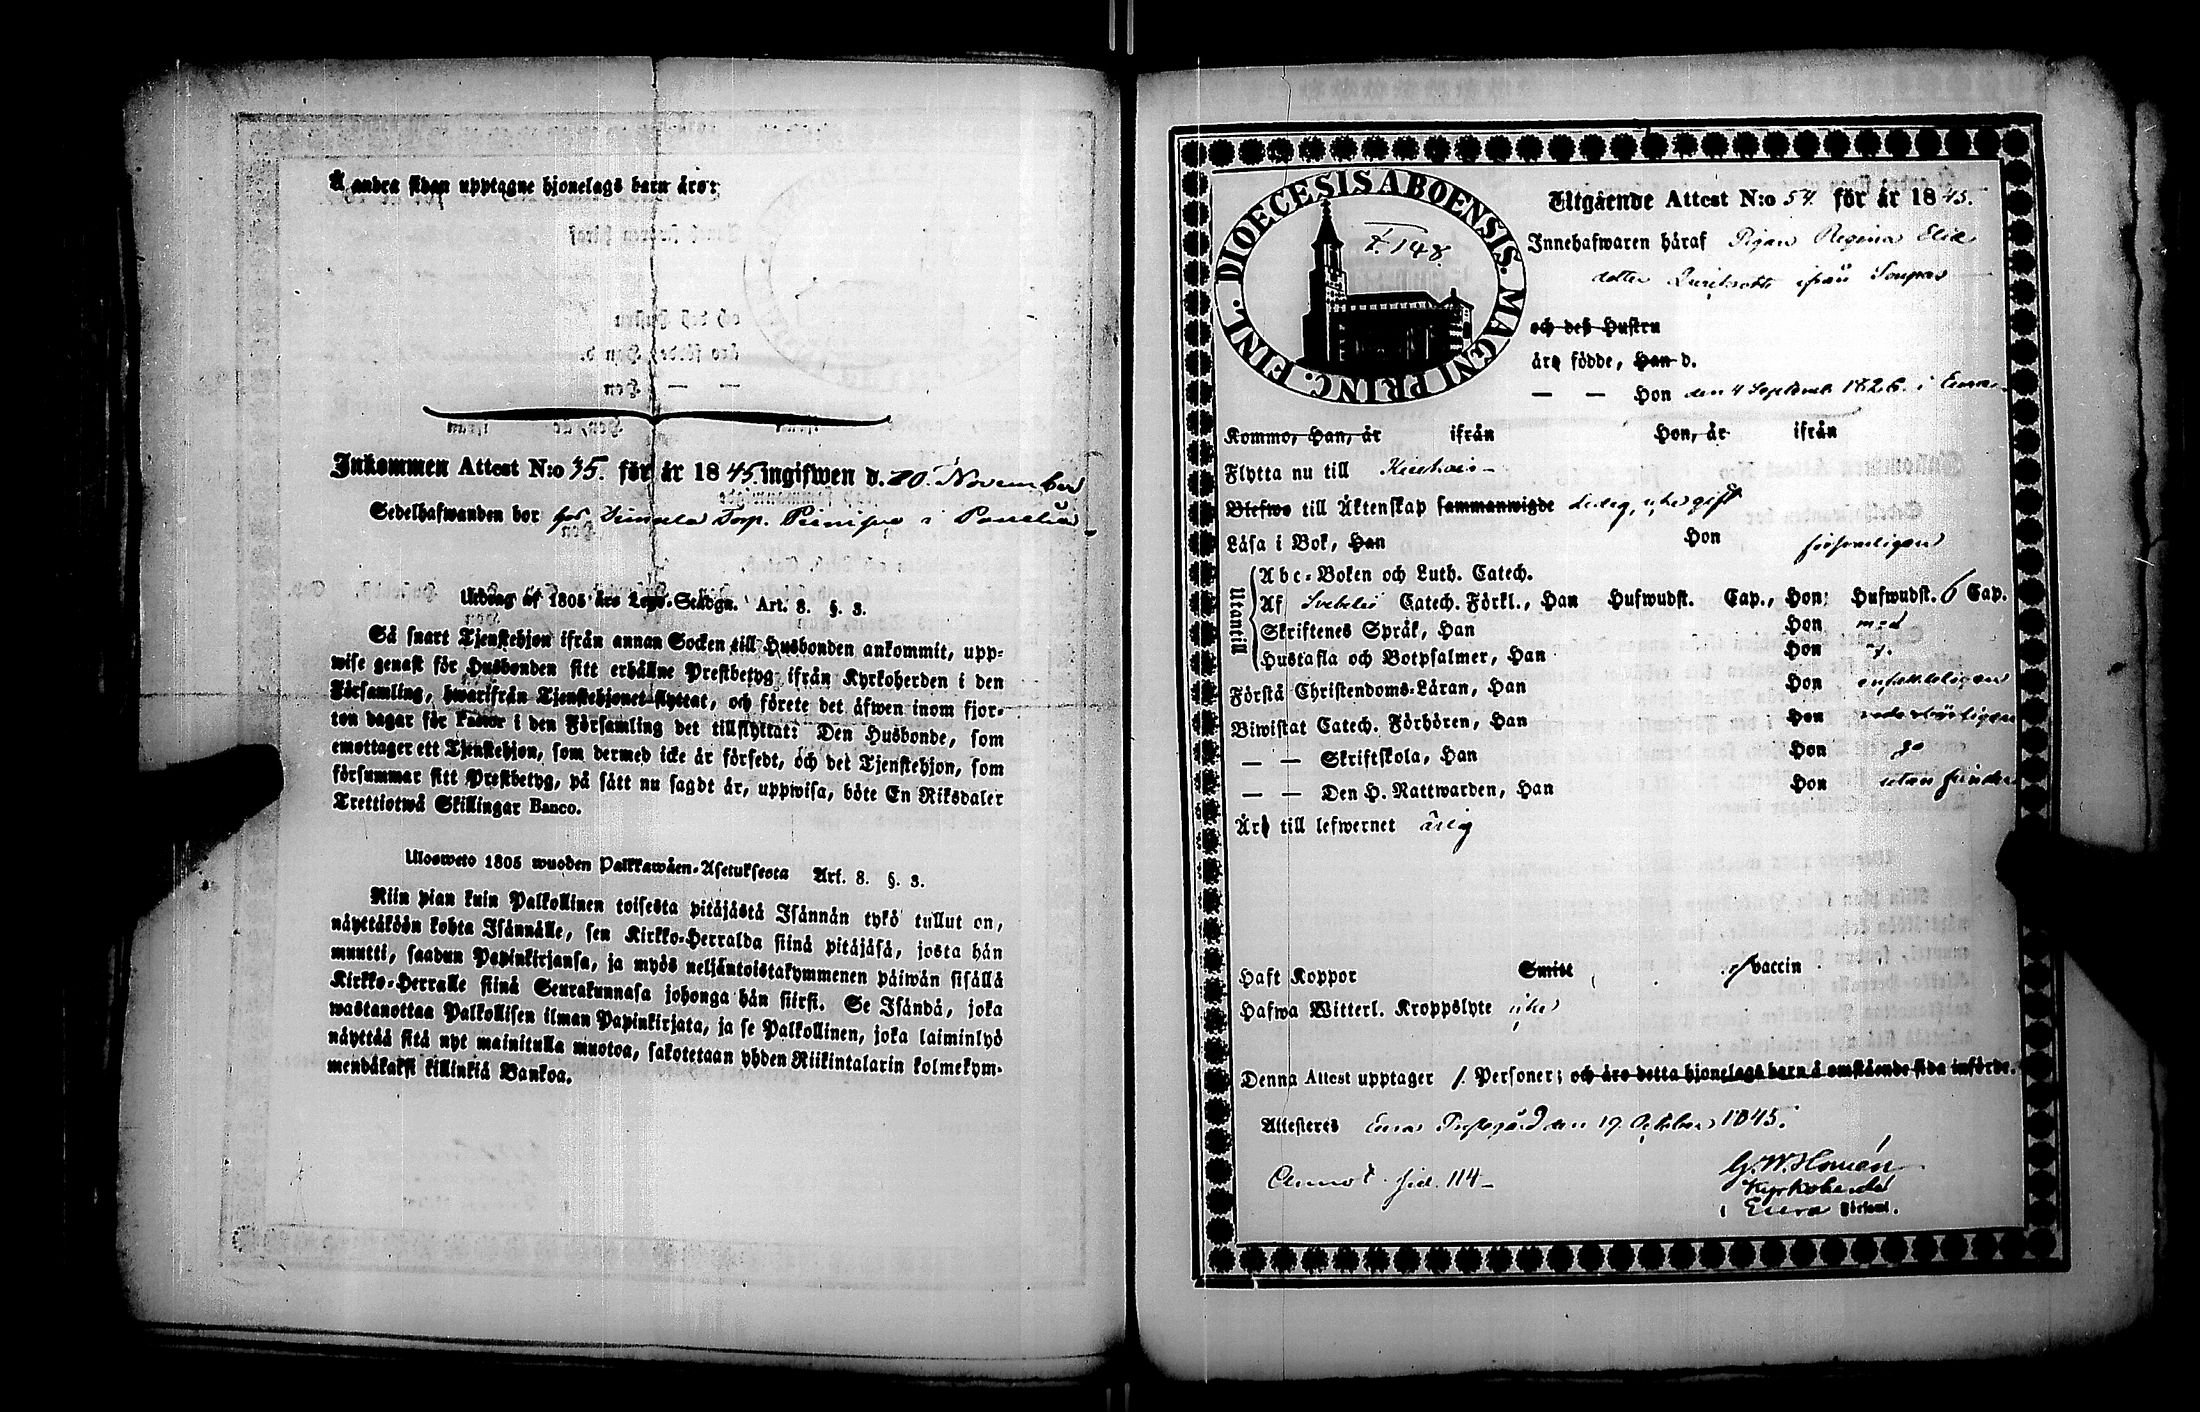 Å andra sidan upptagne hjonelags barn äro:
Inkommen Attest N:o 35. för år 1845. ingifwen d. 20. November
Sedelhafwanden bor hos
Utdrag af 1805 års Lego-Stadgn. Art. 8. §. 3.
Så snart Tjenstehjon ifrån annan Socken till Husbonden ankommit, upp-
wise genast för Husbonden sitt erhållne Prestbetyg ifrån Kyrkoherden i den
Församling, hwarifrån Tjenstehjonet flyttat, och förete det äfwen inom fjor-
ton dagar för Pastor i den Församling det tillflyttat: Den Husbonde, som
emottager ett Tjenstehjon, som dermed icke är försedt, och det Tjenstehjon, som
försummar sitt Prestbetyg, på sätt nu sagdt är, uppwisa, böte En Riksdaler
Trettiotwå Skillingar Banco.
Uloswetо 1805 wuoden Palkkawäen-Asetuksesta Art. 8. §. 3.
Niin pian kuin Palkollinen toisesta pitäjästä Isännän tykö tullut on,
näyttäköön kohta Isännälle, sen Kirkko-Herralda siinä pitäjäsä, josta hän
muutti, saadun Papinkirjansa, ja myös neljäntoistakymmenen päiwän sisällä
Kirkko-Herralle siinä Seurakunnasa johonga hän siirsi. Se Isändä, joka
wastanottaa Palkollisen ilman Papinkirjata, ja se Palkollinen, joka laiminlyö
näyttää sitä nyt mainitulla muotoa, sakotetaan yhden Riikintalarin kolmekym-
mendäkaksi killinkiä Bankoa.
DIOECESIS ABOENSIS. MAGNI PRINC. FINL.
F. 148.
Utgående Attest N:o 54. för år 1845.
Innehafwaren häraf Pigan Regina Elia
dotter ifrån
och deß Hustru
äro födde, Han d.
— — Hon den 4 Septemb. 1826. i Eura
Kommo, Han, år ifrån Hon, år ifrån
Flytta nu till
Blefwo till Äktenskap sammanwigde Ledig, icke gift
Läsa i Bok, Han Hon försvarligen
Utantill
Abc-Boken och Luth. Catech.
Af Svebelii Catech. Förkl., Han Hufwudst. Cap., Hon: Hufwudst. 6 Cap.
Skriftenes Språk, Han Hon med
Hustafla och Botpsalmer, Han Hon
Förstå Christendoms-Läran, Han Hon enfaldeligen
Biwistat Catech. Förhören, Han Hon vederbörligen
— — Skriftskola, Han Hon
— — Den H. Nattwarden, Han Hon utan hinder
Äro till lefwernet ärlig
Haft Koppor Smitt vaccin
Hafwa Witterl. Kroppslyte icke
Denna Attest upptager 1. Personer; och äro detta hjonelags barn å omstående sida införde.
Attesteres Eura Prestegård den 19. October 1845.
Annot. sid. 114
G. W. Homén
Kyrkoherde
i Eura Församl.